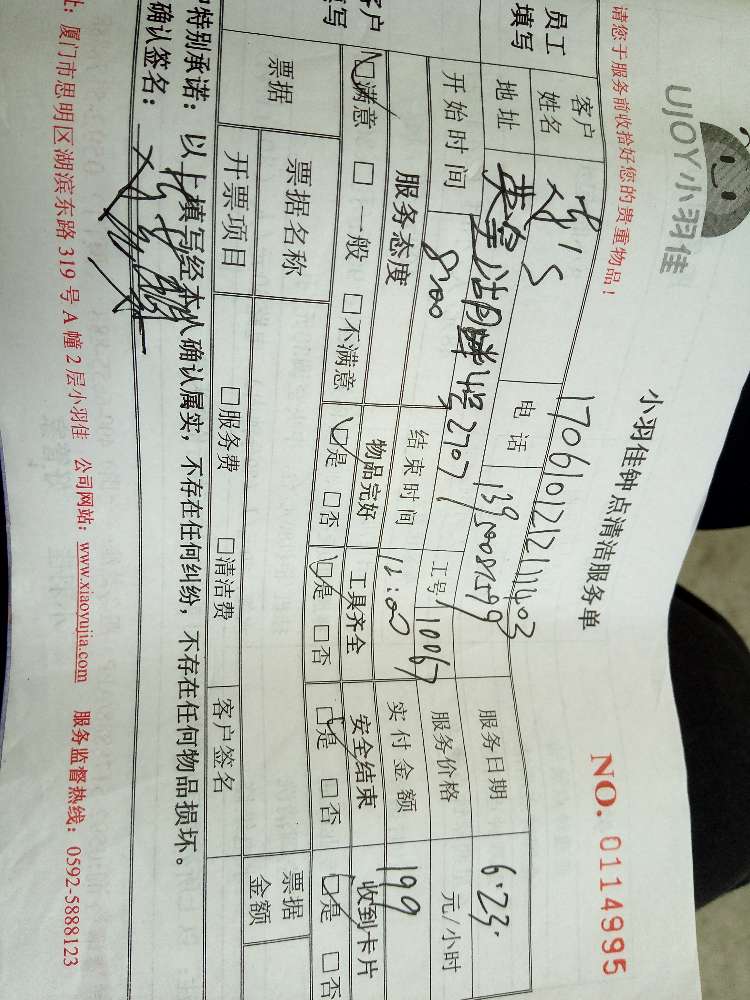 UJOY小羽佳
小羽佳钟点清洁服务单
NO. 0114995
请您于服务前收拾好您的贵重物品！
170610121211403
员工填写 客户姓名 电话 服务日期 6.23.
地址 2707 工号 10067 服务价格 元/小时
开始时间 8:00 结束时间 12:00 实付金额 199
服务态度 物品完好 工具齐全 安全结束 收到卡片
☑满意 □一般 □不满意 ☑是 □否 ☑是 □否 ☑是 □否 ☑是 □否
票据 票据名称 票据金额
开票项目 □服务费 □清洁费 客户签名
特别承诺：以上填写经本人确认属实，不存在任何纠纷，不存在任何物品损坏。
确认签名：
址：厦门市思明区湖滨东路 319 号 A 幢 2 层小羽佳 公司网站：www.xiaoyujia.com 服务监督热线：0592-5888123